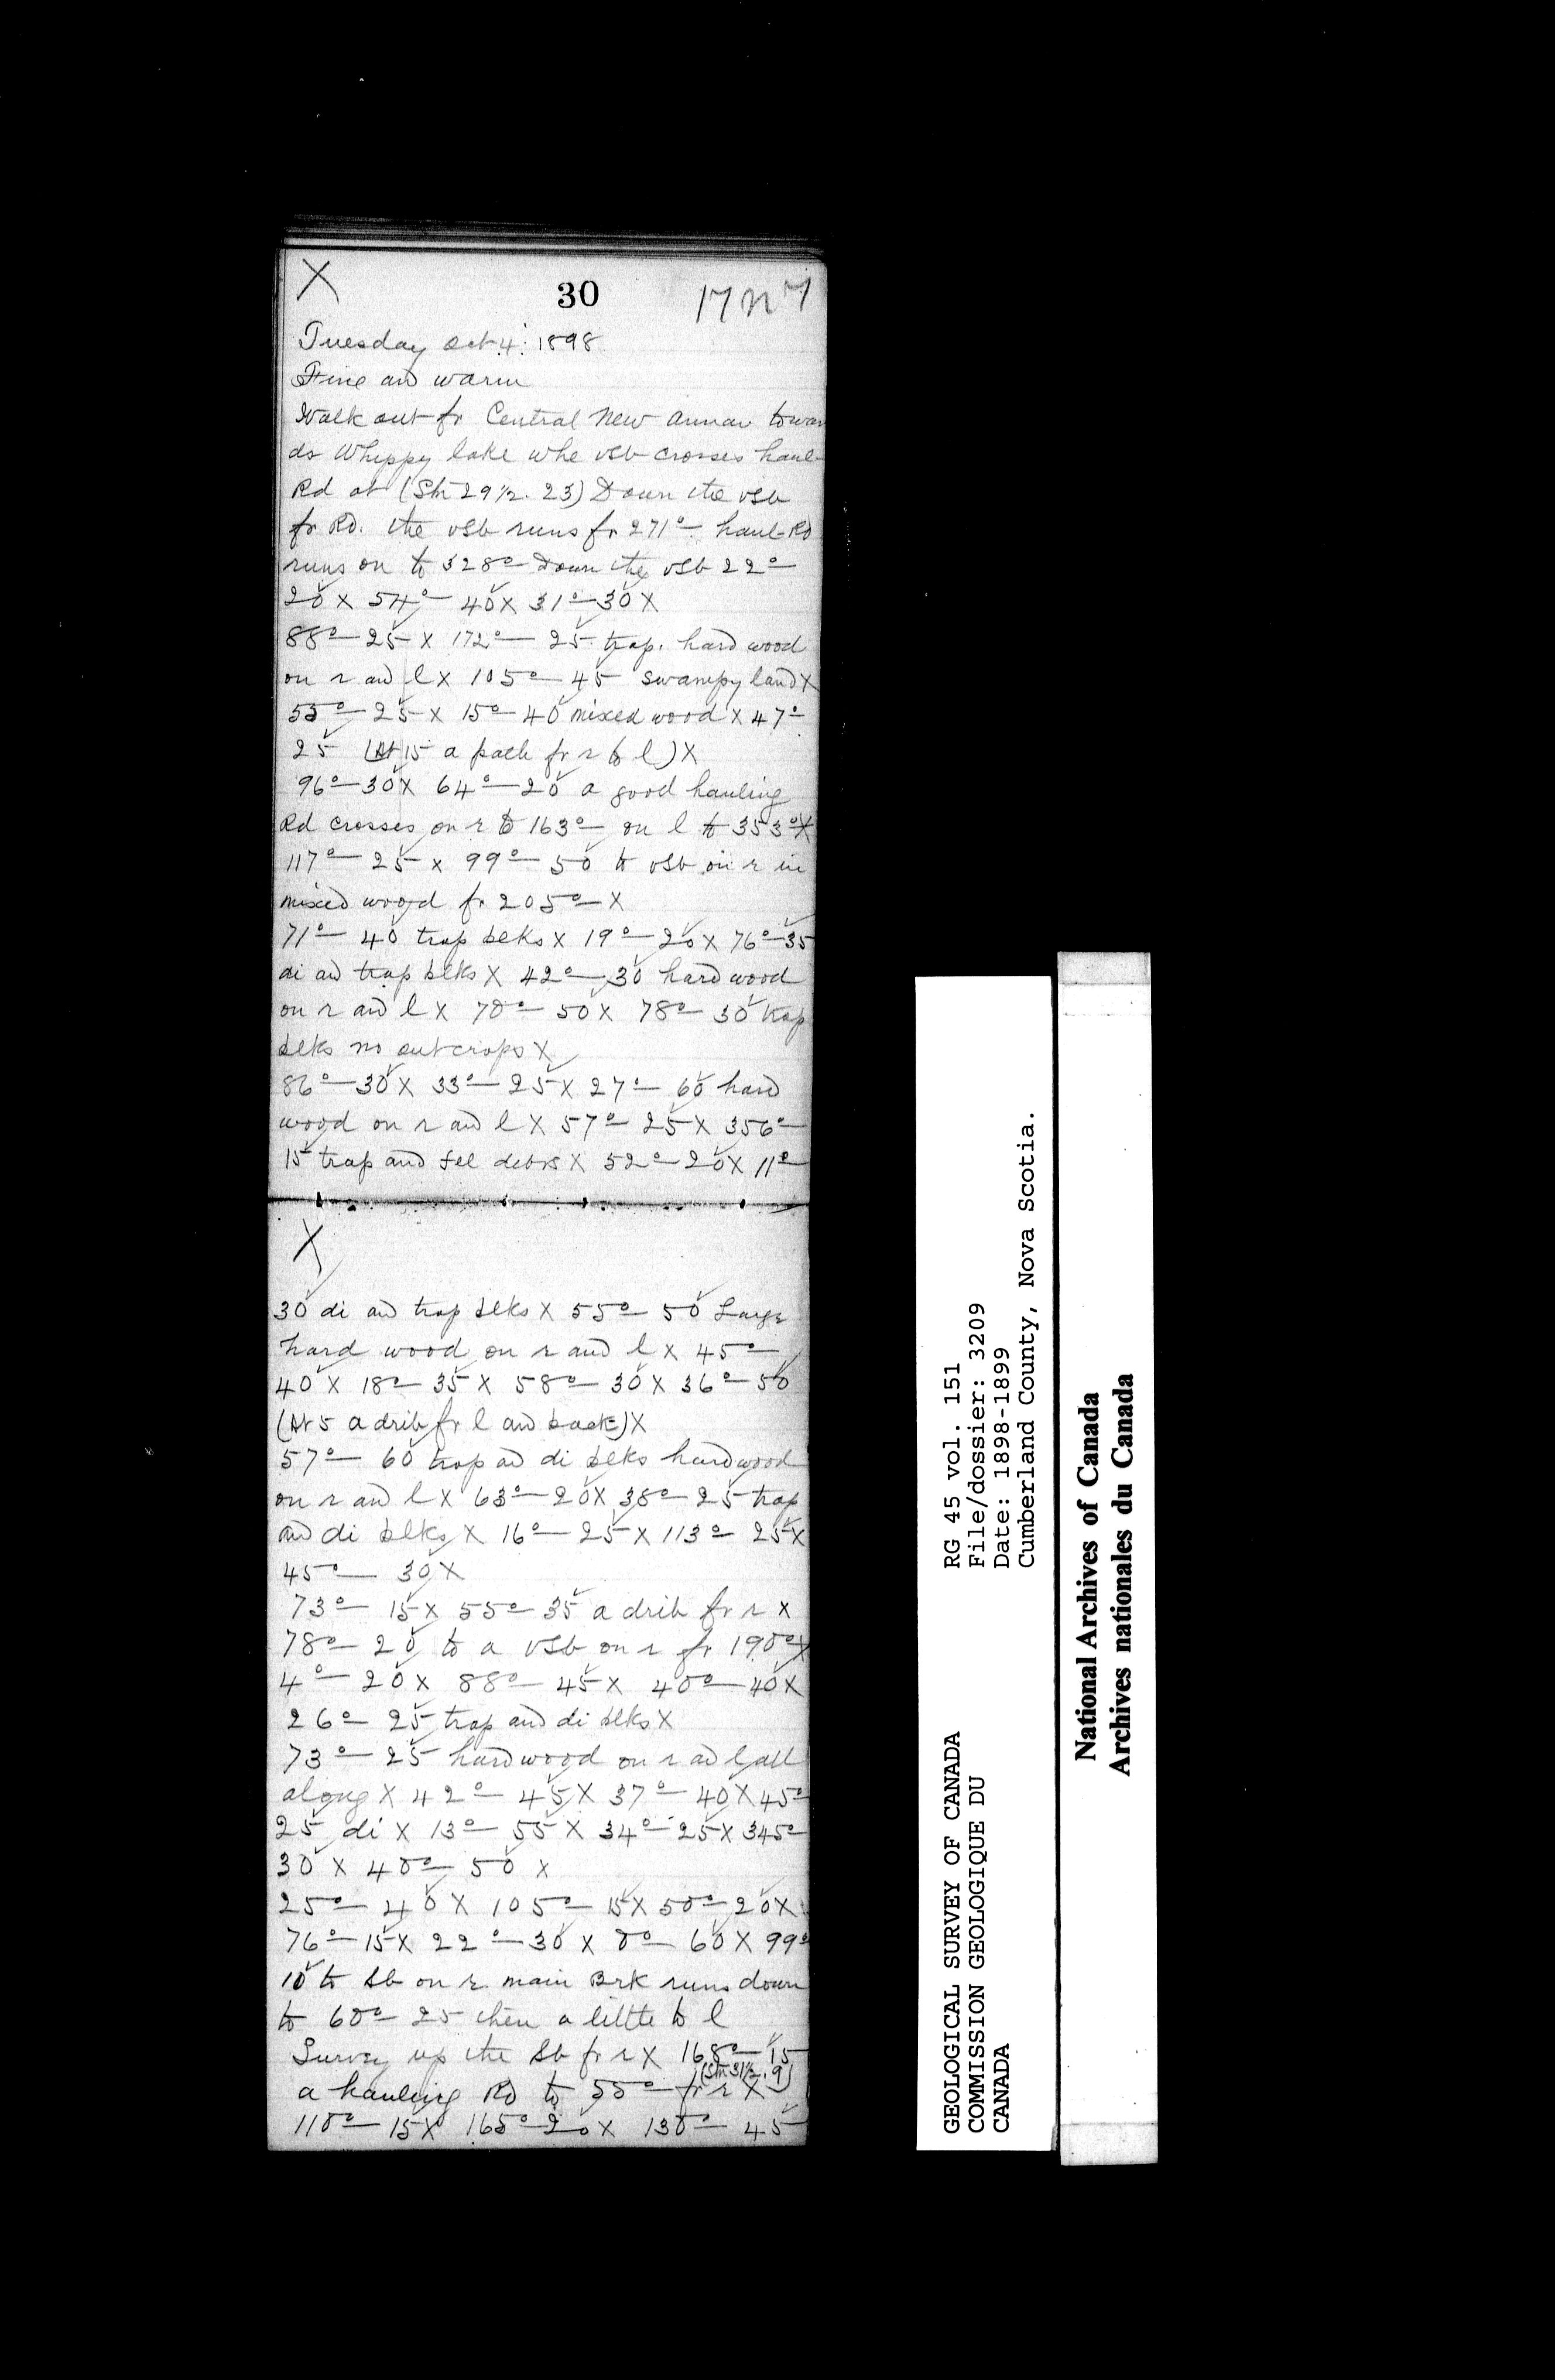 X 30 17 N 7
Tuesday Oct 4: 1898
Fine and warm
Walk out fr Central New Annan towar
ds Whippy lake whe vsb crosses haul-
Rd at (Sh 29 1/2. 23) Down the vsb
fr Rd. the vsb runs fr 271° haul-Rd
runs on to 328° Down the vsb 22°
20 X 54° 40 X 31° 30 X
88° 25 X 172° 25 trap. hard wood
on r and l X 105° 45 swampy land X
55° 25 X 15° 40 mixed wood X 47°
25 (At 15 a path fr r to l) X
96° 30 X 64° 20 a good hauling
Rd crosses on r to 163° on l to 353° X
117° 25 X 99° 50 to vsb on r in
mixed wood fr 205° X
71° 40 trap blks X 19° 20 X 76° 35
di and trap blks X 42° 30 hard wood
on r and l X 70° 50 X 78° 30 trap
blks no outcrops X
86° 30 X 33° 25 X 27° 60 hard
wood on r and l X 57° 25 X 356°
15 trap and fel debris X 52° 20 X 11°
X
30 di and trap blks X 55° 50 Large
hard wood on r and l X 45°
40 X 18° 35 X 58° 30 X 36° 50
(At 5 a drib fr l and back) X
57° 60 trap and di blks hard wood
on r and l X 63° 20 X 38° 25 trap
and di blks X 16° 25 X 113° 25 X
45° 30 X
73° 15 X 55° 35 a drib fr r X
78° 20 to a vsb on r fr 190° X
4° 20 X 88° 45 X 40° 40 X
26° 25 trap and di blks X
73° 25 hard wood on r and l all
along X 42° 45 X 37° 40 X 45°
25 di X 13° 55 X 34° 25 X 345°
30 X 40° 50 X
25° 40 X 105° 15 X 50° 20 X
76° 15 X 22° 30 X 0° 60 X 99°
10 to Sb on r main Brk runs down
to 60° 25 then a little to l
Survey up the Sb fr r X 168° 15
(Sh 31 1/2. 9)
a hauling Rd to 55° fr r X
110° 15 X 165° 20 X 130° 45
GEOLOGICAL SURVEY OF CANADA
COMMISSION GEOLOGIQUE DU
CANADA
RG 45 vol. 151
File/dossier: 3209
Date: 1898-1899
Cumberland County, Nova Scotia.
National Archives of Canada
Archives nationales du Canada